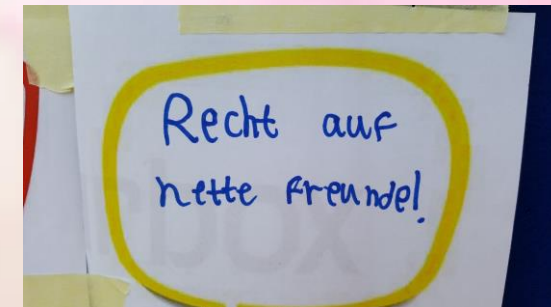 Recht auf
nette Freunde!